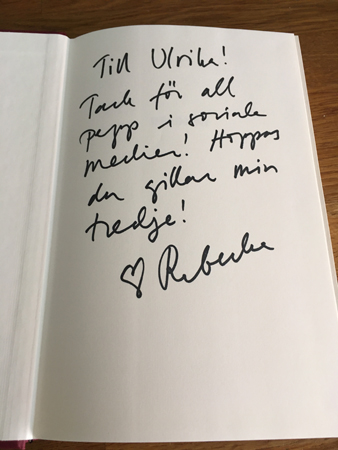 Till Ulrika!
Tack för all
pepp i sociala
medier! Hoppas
du gillar min
tredje!
♡ Rebecka